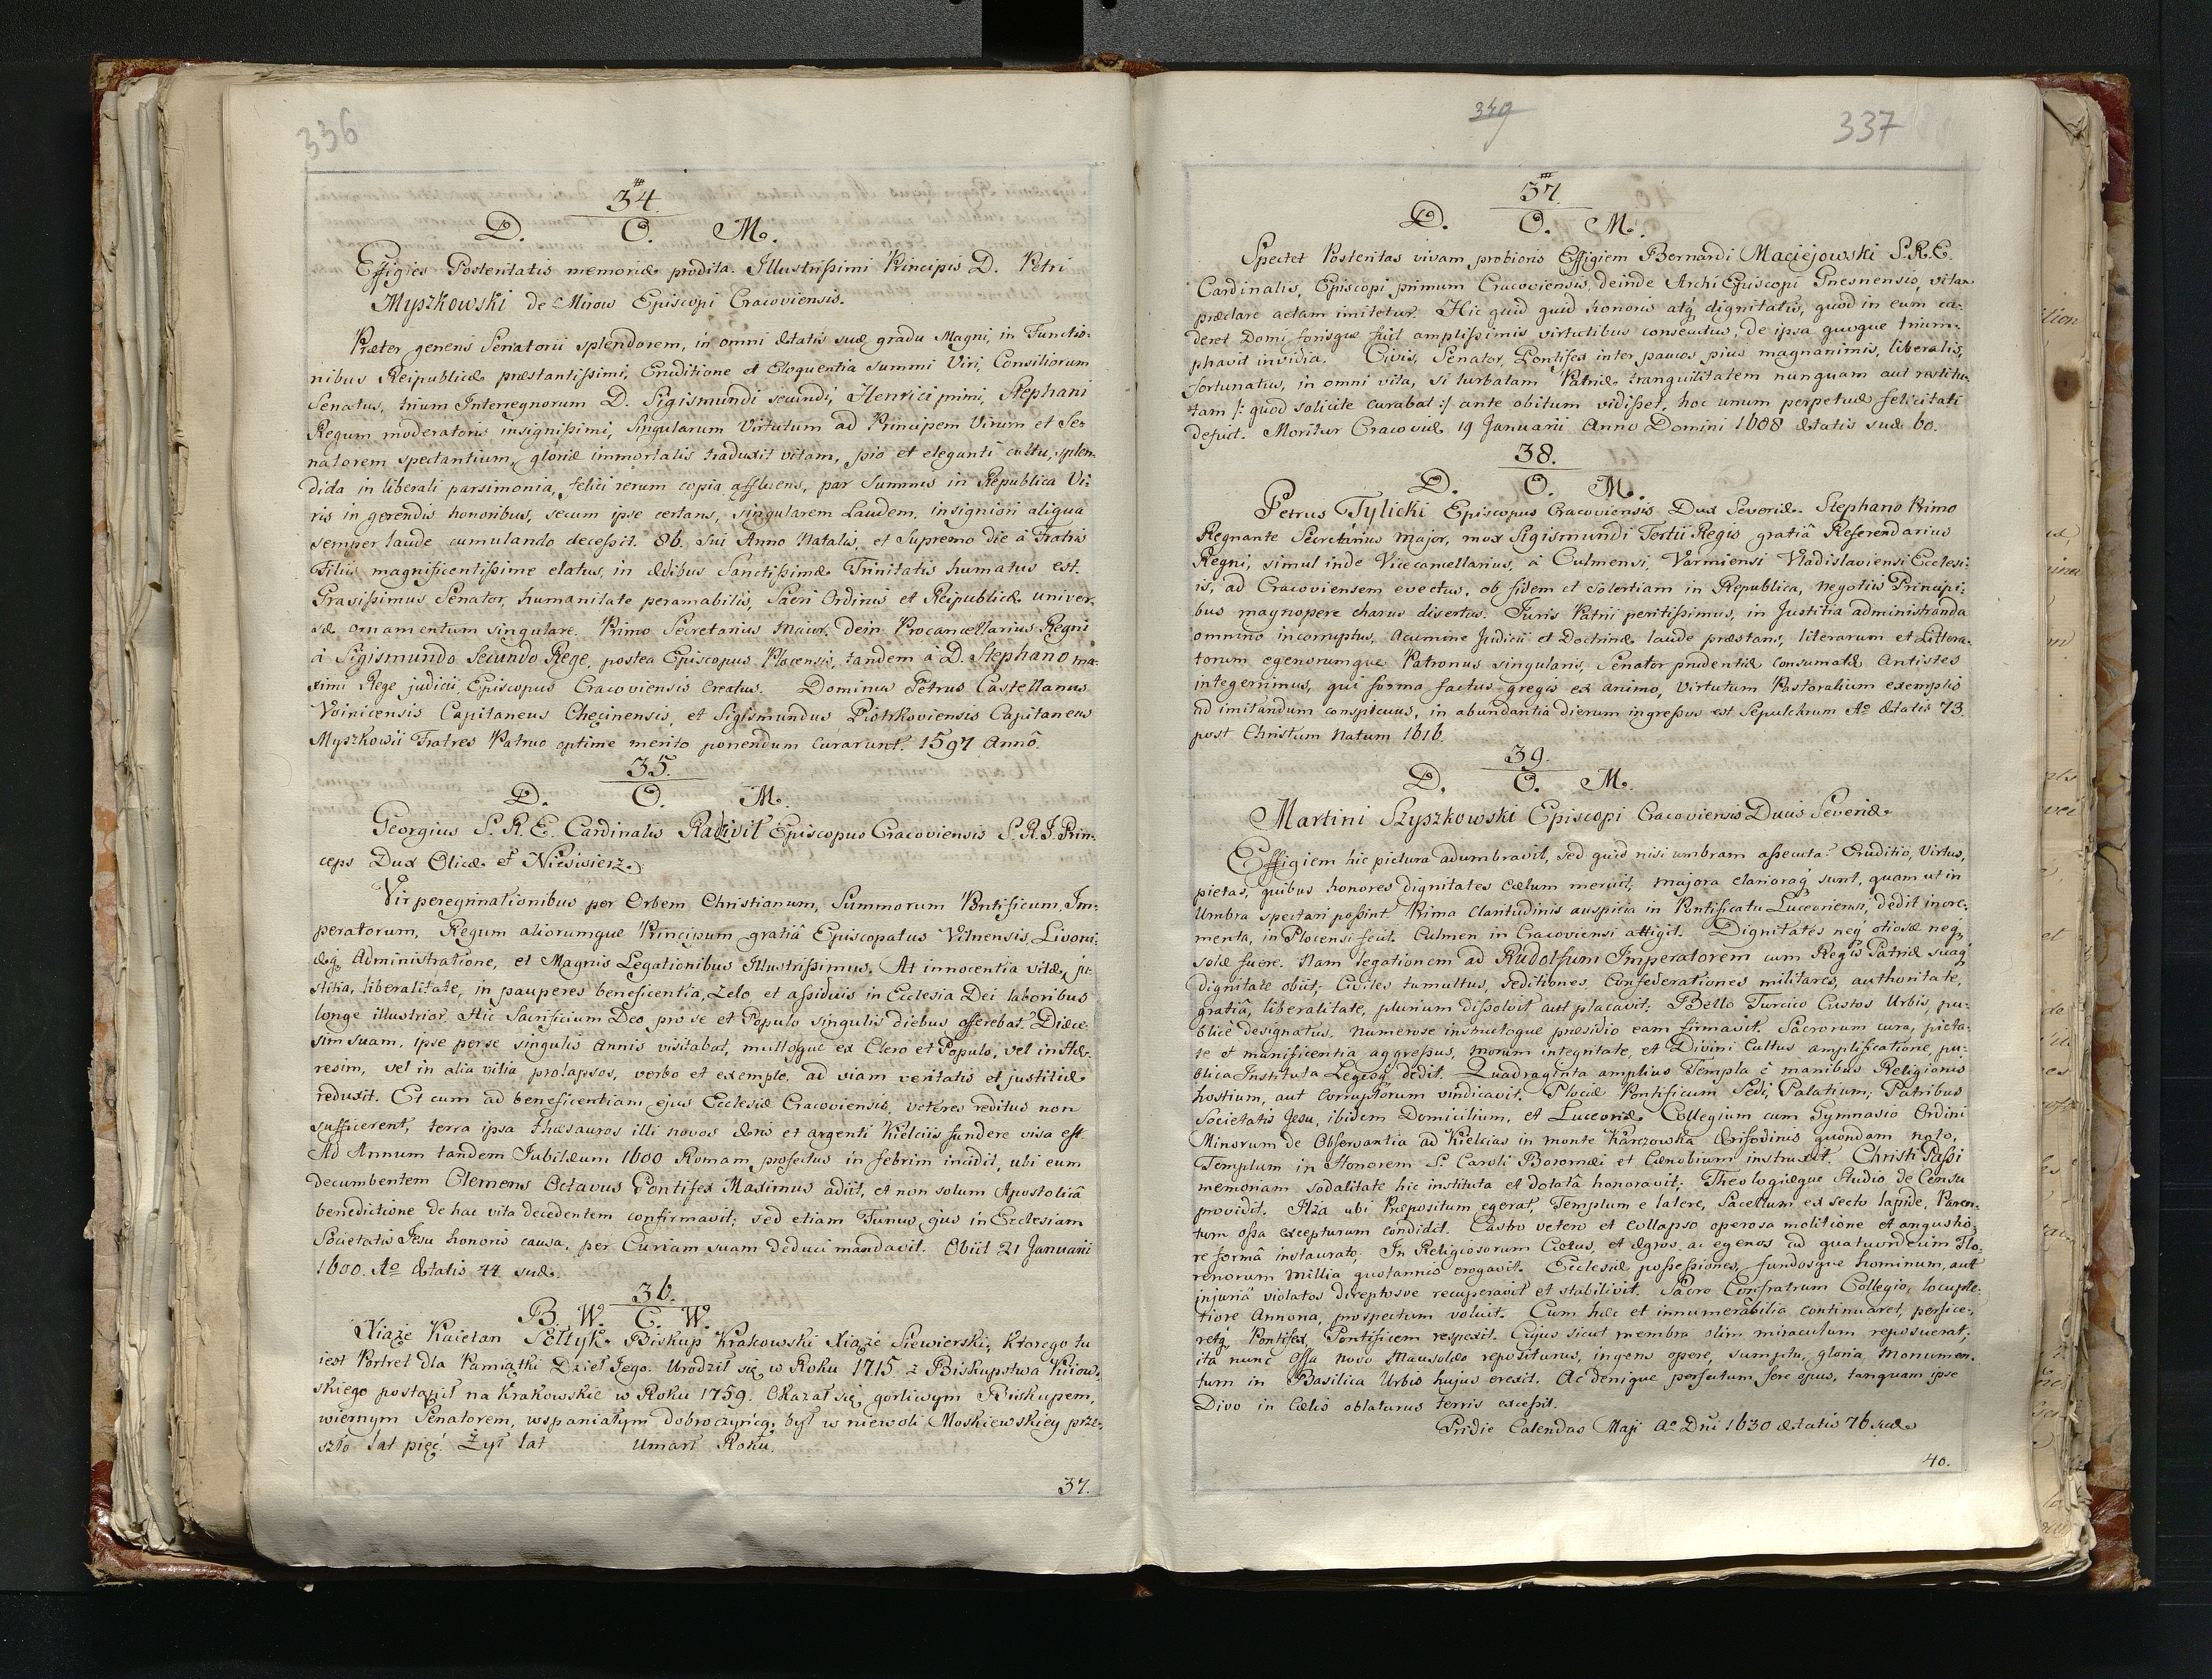 336
34.
D. O. M.
Effigies Posteritatis memoriæ prodita. Illustrissimi Principis D. Petri
Myszkowski de Mirow Episcopi Cracoviensis.
Præter generis Senatorii splendorem, in omni ætatis suæ gradu Magni, in Functio-
nibus Reipublicæ præstantissimi, Eruditione et Eloquentia summi Viri, Consiliorum
Senatus, trium Interregnorum D. Sigismundi secundi, Henrici primi, Stephani
Regum moderatoris insignissimi, singularum Virtutum ad Principem Virum et Se-
natorem spectantium, gloriæ immortalis traduxit vitam, pio et eleganti cultu, splen-
dida in liberali parsimonia, felici rerum copia affluens, par Summis in Republica Vi-
ris in gerendis honoribus, secum ipse certans, singularem Laudem, insigniori aliqua
semper laude cumulando decessit. 86. sui Anno Natalis, et supremo die à Fratris
Filiis magnificentissime elatus, in ædibus Sanctissimæ Trinitatis humatus est.
Gravissimus Senator, humanitate peramabilis, Sacri Ordinis et Reipublicæ univer-
sæ ornamentum singulare. Primo Secretarius Maior, dein Procancellarius Regni
à Sigismundo Secundo Rege, postea Episcopus Plocensis, tandem à D. Stephano ma-
ximi Rege judicii, Episcopus Cracoviensis Creatus. Dominus Petrus Castellanus
Voinicensis Capitaneus Chęcinensis, et Sigismundus Piotrkoviensis Capitaneus
Myszkowii Fratres Patruo optime merito ponendum Curarunt. 1597 Annô.
35.
D. O. M.
Georgius S. R. E. Cardinalis Radzivił Episcopus Cracoviensis S. R. J. Prin-
ceps Dux Olicæ et Niesisierz.
Vir peregrinationibus per Orbem Christianum, Summorum Pontificum, Im-
peratorum, Regum aliorumque Principum gratiâ Episcopatus Vilnensis, Livoni-
æq. Administratione, et Magnis Legationibus Illustrissimus. At innocentia vitæ, ju-
stitia, liberalitate, in pauperes beneficentia, Zelo et assiduis in Ecclesia Dei laboribus
longe illustrior. Hic Sacrificium Deo pro se et Populo singulis diebus offerebat. Diœce-
sim suam, ipse per se singulis Annis visitabat, multosque ex Clero et Populo, vel in Hæ-
resim, vel in alia vitia prolapsos, verbo et exemplo ad viam veritatis et justitiæ
reduxit. Et cum ad beneficentiam ejus Ecclesiæ Cracoviensis, veteres reditus non
sufficerent, terra ipsa thæsauros illi novos æris et argenti Kielciis fundere visa est.
Ad Annum tandem Jubilæum 1600 Romam profectus in febrim incidit, ubi eum
decumbentem Clemens Octavus Pontifex Maximus adiit, et non solum Apostolicâ
benedictione de hac vita decedentem confirmavit; sed etiam Funus ejus in Ecclesiam
Societatis Jesu honoris causa, per Curiam suam deduci mandavit. Obiit 21 Januarii
1600. Ao Ætatis 44 suæ.
36.
B. W. C. W.
Xiąże Kaietan Sołtyk Biskup Krakowski Xiąże Siewierski, którego tu
iest Portret dla Pamiątki Dzieł Jego. Urodził się w Roku 1715. z Biskupstwa Kiiow-
skiego postąpił na Krakowskie w Roku 1759. Okazał się gorliwym Biskupem,
wiernym Senatorem, wspaniałym dobroczyńcą, był w niewoli Moskiewskiey prze-
szło lat pięć. Żył lat Umarł Roku.
37.
349
337
37.
D. O. M.
Spectet Posteritas vivam probioris Effigiem Bernardi Maciejowski S.R.E.
Cardinalis, Episcopi primum Cracoviensis, deinde Archi Episcopi Gnesnensis, vitam
præclare actam imitetur. Hic quid quid honoris atq. dignitatis, quod in eum ca-
deret Domi forisque fuit amplissimis virtutibus consecutus, de ipsa quoque trium-
phavit invidia. Civis, Senator, Pontifex inter paucos pius magnanimis, liberalis,
fortunatus, in omni vita, si turbatam Patriæ tranquilitatem nunquam aut restitu-
tam /: quod solicite curabat :/ ante obitum vidisset, hoc unum perpetuæ felicitati
defuit. Moritur Cracoviæ 19 Januarii Anno Domini 1608 ætatis suæ 60.
38.
D. O. M.
Petrus Tylicki Episcopus Cracoviensis Dux Severiæ. Stephano Primo
Regnante Secretarius Major, mox Sigismundi Tertii Regis gratiâ Referendarius
Regni, simul inde Vicecancellarius, à Culmensi, Varmiensi Vladislaviensi Ecclesi-
is, ad Cracoviensem evectus, ob fidem et solertiam in Republica, negotiis Principi-
bus magnopere charus disertus. Juris Patrii peritissimus, in Justitia administranda
omnino incorruptus, Acumine Judicii et Doctrinæ laude præstans, literarum et Littera-
torum egenorumque Patronus singularis, Senator prudentiæ consumatæ Antistes
integerrimus, qui forma factus gregis ex animo, Virtutum Pastoralium exemplis
ad imitandum conspicuus, in abundantia dierum ingressus est Sepulchrum Ao ætatis 73.
post Christum Natum 1616.
39.
D. O. M.
Martini Szyszkowski Episcopi Cracoviensis Ducis Severiæ
Effigiem hic pictura adumbravit, sed quid nisi umbram assecuta? Eruditio, Virtus,
pietas, quibus honores dignitates Cælum meruit, majora clarioraq sunt, quam ut in
Umbra spectari possint. Prima Claritudinis auspicia in Pontificatu Luceoriensi, dedit incre-
menta, in Plocensi fecit. Culmen in Cracoviensi attigit. Dignitates neq otiosæ neq
solæ fuere. Nam legationem ad Rudolfum Imperatorem cum Regis Patriæ suaq
dignitate obiit; Civiles tumultus, seditiones, Confœderationes militares, authoritate,
gratiâ, liberalitate, plurium dissolvit aut placavit. Bello Turcico Custos Urbis, pu-
blicè designatus. Numerose instructoque præsidio eam firmavit. Sacrorum cura, pieta-
te et munificentia aggressus, morum integritate, et Divini Cultus amplificatione, pu-
blica Instituta Legesq dedit. Quadraginta amplius Templa è manibus Religionis
hostium, aut Corruptorum vindicavit. Plociæ Pontificum Sedi, Palatium; Patribus
Societatis Jesu, ibidem Domicilium, et Luceoriæ Collegium cum Gymnasio Ordini
Minorum de Observantia ad Kielcias in monte Karczowska ærifodinis quondam noto,
Templum in Honorem S. Caroli Boromæi et Cænobium instruxit. Christi Passi
memoriam sodalitate hic instituta et dotatâ honoravit; Theologiæque studio de Censu
providit. Ilża ubi Præpositum egerat, Templum e latere, Sacellum ex secto lapide, Paren-
tum ossa excepturum condidit. Castro vetere et collapso operosa molitione et angustio-
re formâ instaurato, In Religiosorum Cætus, et ægros, ac egenos ad quatuordecim Flo-
renorum Millia quotannis erogavit. Ecclesiæ possessiones, fundosque hominum, aut
injuriâ violatos direptosve recuperavit et stabilivit. Sacro Confratrum Collegio, locuple-
tiore Annona, prospectum voluit. Cum hæc et innumerabilia continuaret, perfice-
retq Pontifex Pontificem respexit. Cujus sicut membra olim miraculum reposuerat;
ita nunc Ossa novo Mausolæo repositurus, ingens opere, sumptu, gloria Monumen-
tum in Basilica Urbis hujus erexit. Ac denique perfectum fere opus, tanquam ipse
Divo in Cælis oblaturus terris excessit.
Pridie Calendas Maji Ao Dni 1630 ætatis 76 suæ
40.